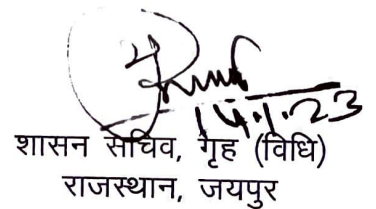 14.1.23
शासन सचिव, गृह (विधि)
राजस्थान, जयपुर